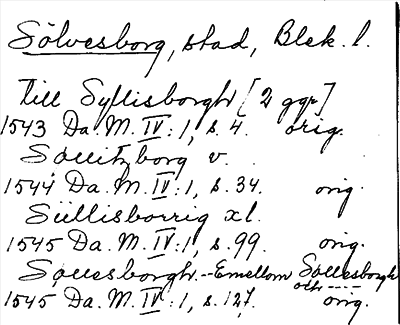 Sölvesborg, stad, Blek. l.
Till Syllisborgh [2 ggr]
1543 Da. M. IV: 1, s. 4. orig.
Söuitzborg v.
1544 Da. M. IV: 1, s. 34. orig.
Süllisborrig xl.
1545 Da. M. IV: 1, s. 99. orig.
Söuesborgh. -- Emellom Söllesborgh
oth ----
1545 Da. M. IV: 1, s. 127. orig.